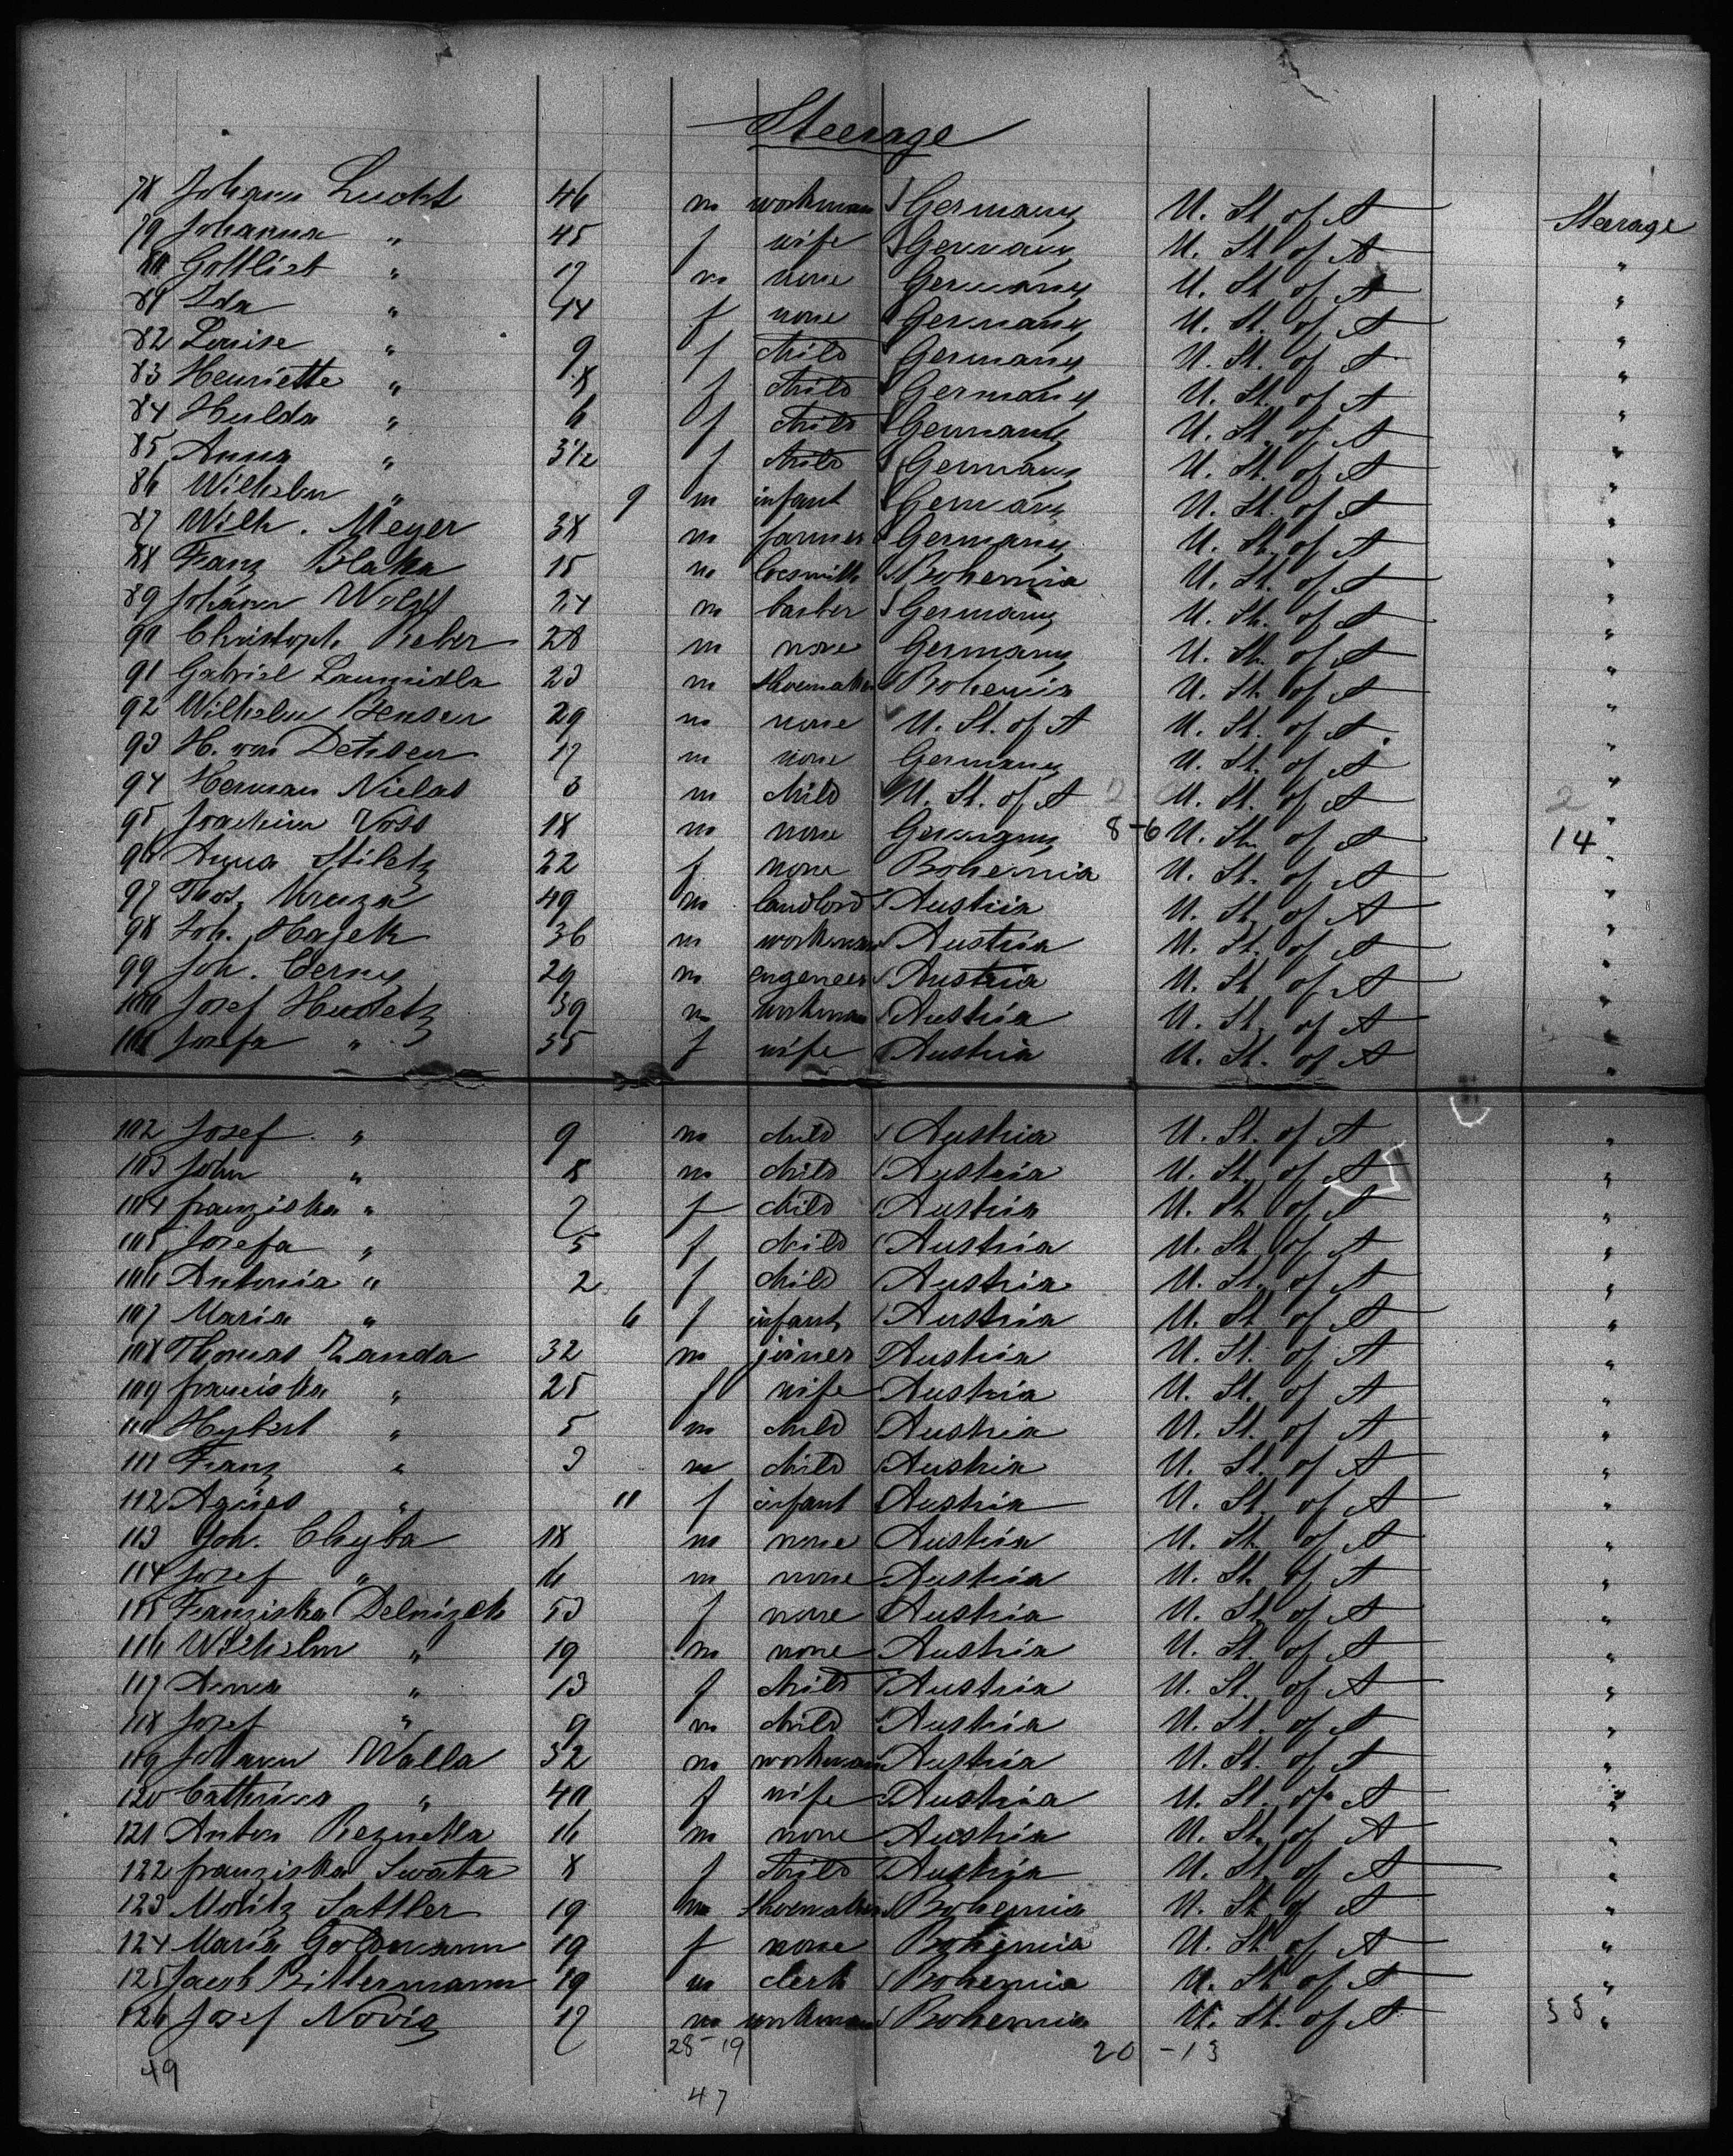 Steerage
78 Johann Lucht 46 m workman Germany U. St. of A Steerage
79 Johanna " 45 f wife Germany U. St. of A "
80 Gottlieb " 17 m none Germany U. St. of A "
81 Ida " 14 f none Germany U. St. of A "
82 Louise " 9 f child Germany U. St. of A "
83 Henriette " 8 f child Germany U. St. of A "
84 Hulda " 6 f child Germany U. St. of A "
85 Anna " 3 1/2 f child Germany U. St. of A "
86 Wilhelm " 9 m infant Germany U. St. of A "
87 Wilh. Meyer 38 m farmer Germany U. St. of A "
88 Franz Blaka 15 m locsmith Bohemia U. St. of A "
89 Johann 24 m barber Germany U. St. of A "
90 Christoph Reher 28 m none Germany U. St. of A "
91 Gabriel 23 m shoemaker Bohemia U. St. of A "
92 Wilhelm Bensen 29 m none U. St. of A U. St. of A "
93 H. von 17 m none Germany U. St. of A "
94 Herman Nielas 3 m child U. St. of A U. St. of A " 2
95 Joachim Voss 18 m none Germany 8-6 U. St. of A 14 "
96 Anna 22 f none Bohemia U. St. of A "
97 Thos. 49 m landlord Austria U. St. of A "
98 Joh. Hajek 36 m workman Austria U. St. of A "
99 Joh. Cerny 29 m engeneer Austria U. St. of A "
100 Josef Hudetz 39 m workman Austria U. St. of A "
101 Josefa " 35 f wife Austria U. St. of A "
102 Josef " 9 m child Austria U. St. of A "
103 John " 8 m child Austria U. St. of A "
104 franziska " 7 f child Austria U. St. of A "
105 Josefa " 5 f child Austria U. St. of A "
106 Antonia " 2 f child Austria U. St. of A "
107 Maria " 6 f infant Austria U. St. of A "
108 Thomas Zanda 32 m joiner Austria U. St. of A "
109 franziska " 25 f wife Austria U. St. of A "
110 " 5 m child Austria U. St. of A "
111 Franz " 3 m child Austria U. St. of A "
112 Agnes " 11 f infant Austria U. St. of A "
113 Joh. Chyba 18 m none Austria U. St. of A "
114 Josef " 16 m none Austria U. St. of A "
115 Franziska Delnizek 53 f none Austria U. St. of A "
116 Wilhelm " 19 m none Austria U. St. of A "
117 Anna " 13 f child Austria U. St. of A "
118 Josef " 9 m child Austria U. St. of A "
119 Johann Walla 32 m workman Austria U. St. of A "
120 Catherina " 40 f wife Austria U. St. of A "
121 Anton 16 m none Austria U. St. of A "
122 franziska Swata 8 f child Austria U. St. of A "
123 Moritz Sattler 19 m shoemaker Bohemia U. St. of A "
124 Maria Goldmann 19 f none Bohemia U. St. of A "
125 Jacob Bittermann 19 m clerk Bohemia U. St. of A "
126 Josef 17 m workman Bohemia U. St. of A 33 "
28-19 20 -13
49
47